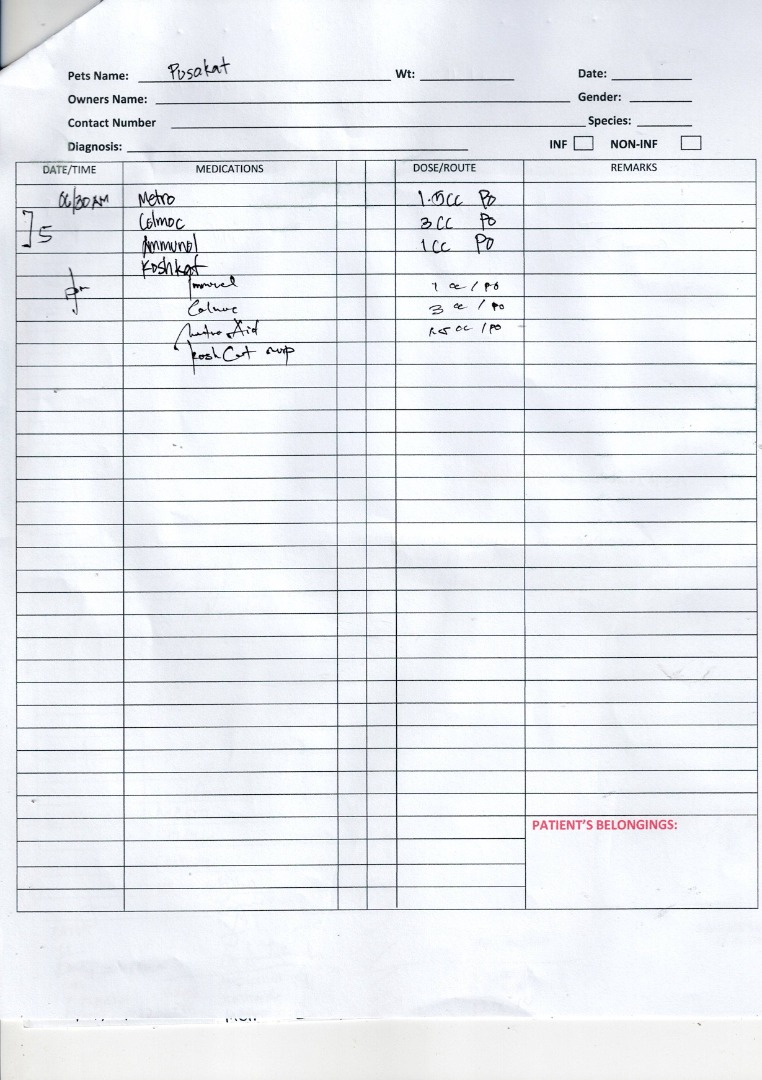 Pets Name: Pusakat Wt: Date:
Owners Name: Gender:
Contact Number Species:
Diagnosis: INF NON-INF
DATE/TIME MEDICATIONS DOSE/ROUTE REMARKS
06/30 AM Metro 1.5cc PO
]5 Colmoc 3 cc PO
Immunol 1 cc PO
Koshkat
pm Immunol 1 cc / PO
Colmoc 3 cc / PO
Metro Aid 1.5 cc / PO
KoshCat
PATIENT'S BELONGINGS: